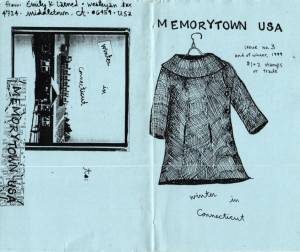 from: Emily K. Larned • wesleyan box
4724 • middletown, ct • 06459 • USA
winter
in
connecticut
to:
MEMORYTOWN USA
MEMORYTOWN USA
issue no. 3
end of winter, 1999
$1 + 2 stamps
or trade
winter in
Connecticut